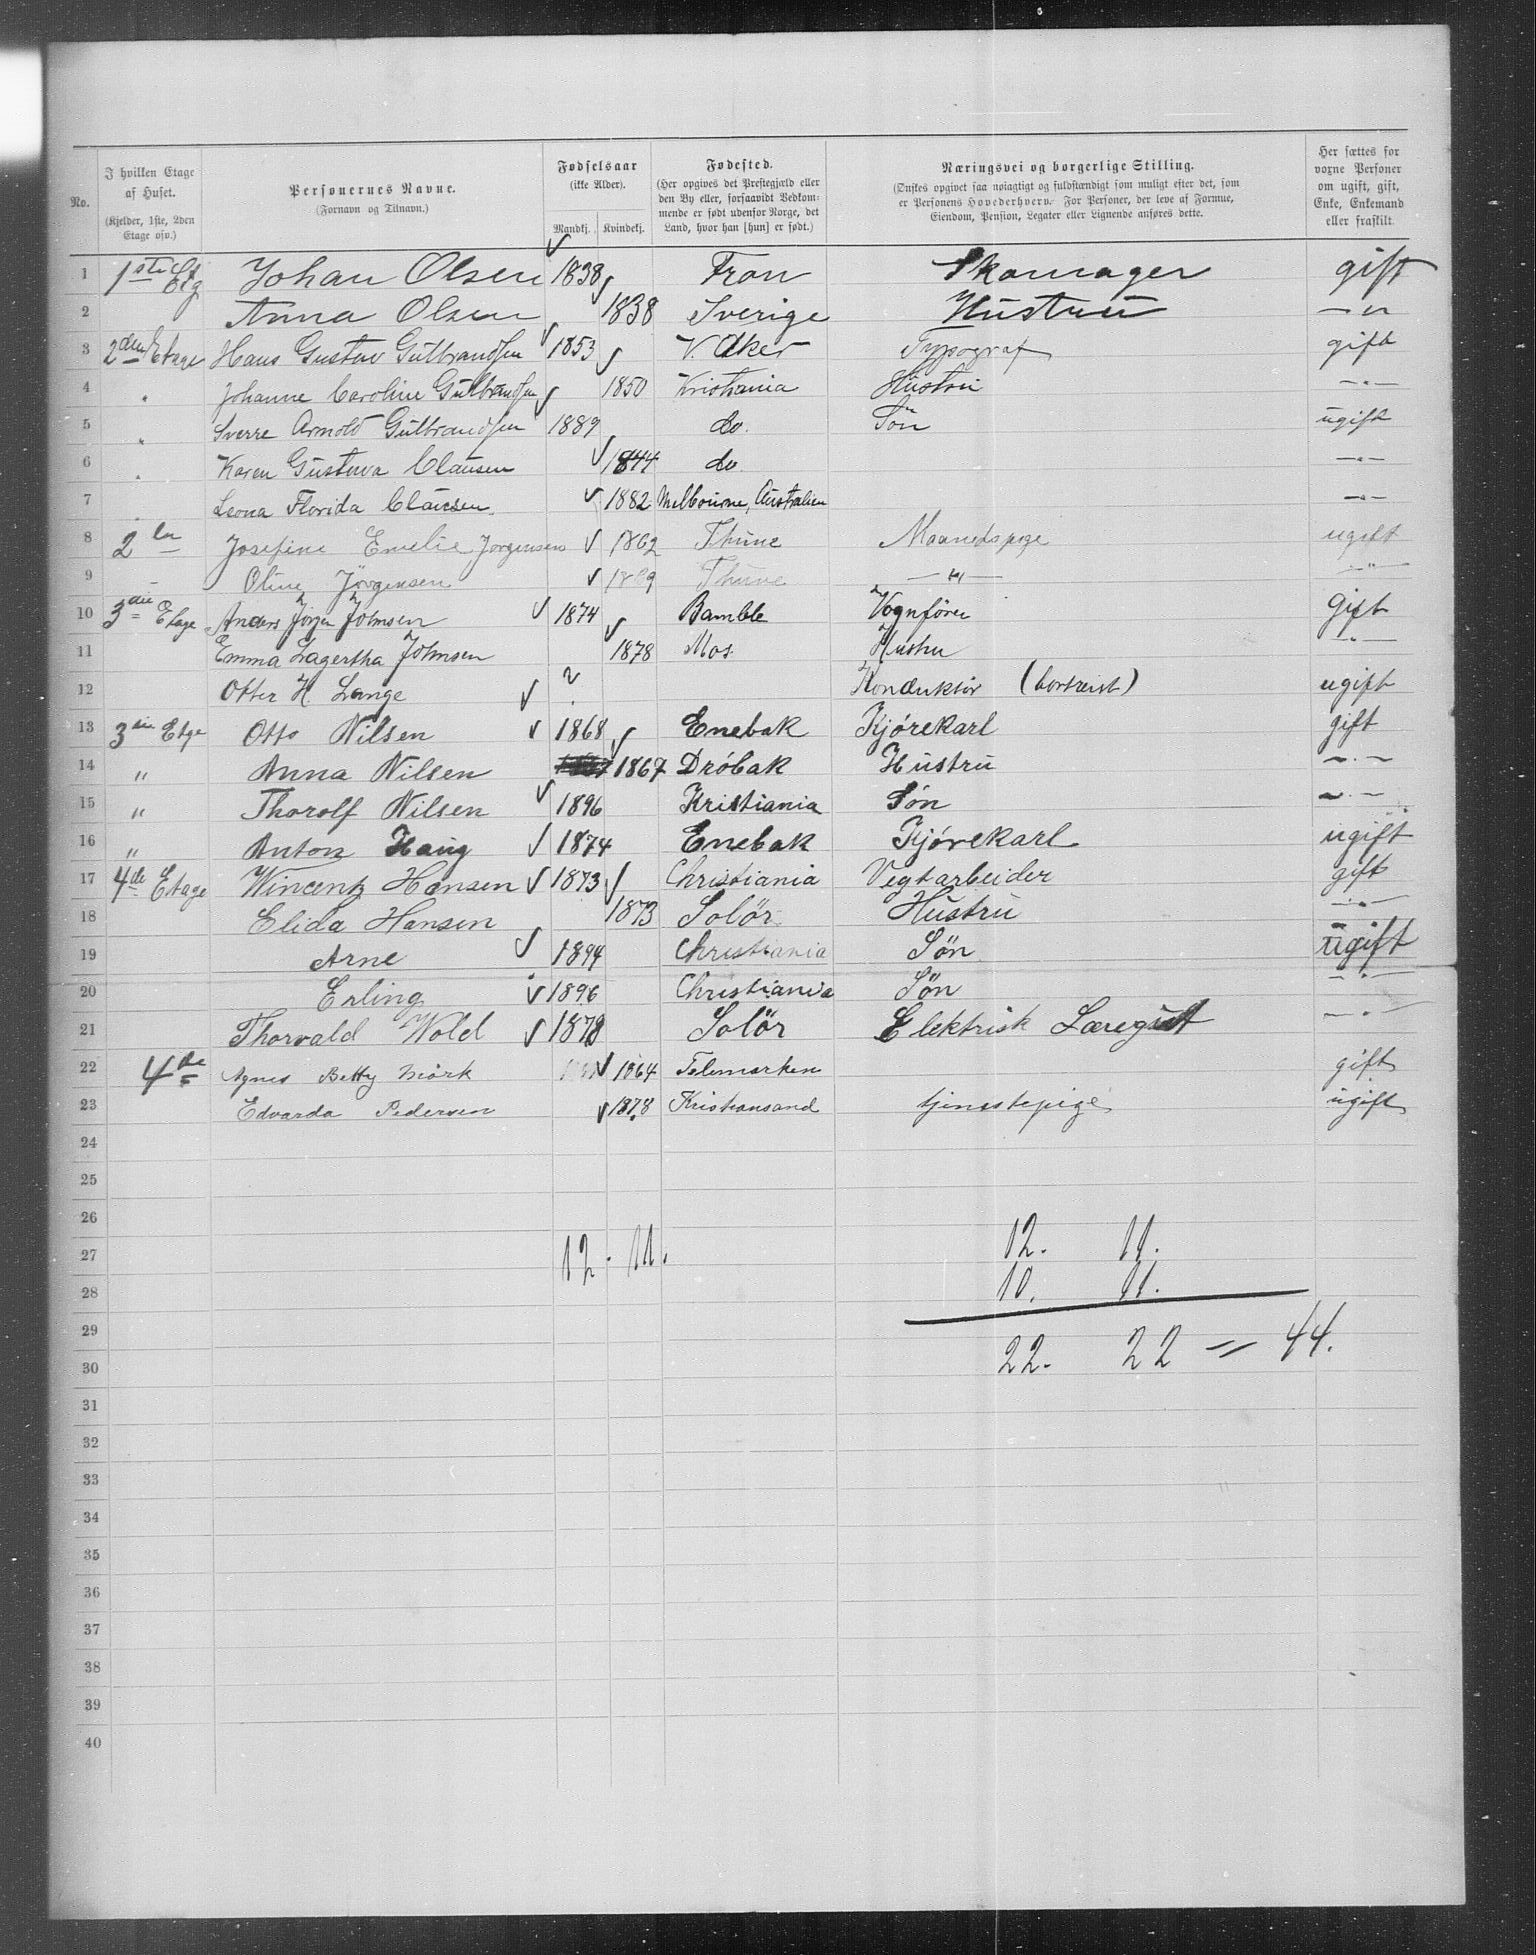 No. I hvilken Etage af Huset. (Kjelder, 1ste, 2den Etage osv.) Personernes Navne. (Fornavn og Tilnavn.) Fødselsaar (ikke Alder). Mandkj. Kvindekj. Fødested. (Her opgives det Prestegjæld eller den By eller, forsaavidt Vedkommende er født udenfor Norge, det Land, hvor han [hun] er født.) Næringsvei og borgerlige Stilling. (Ønskes opgivet saa nøiagtigt og fuldstændigt som muligt efter det, som er Personens Hovederhverv. For Personer, der leve af Formue, Eiendom, Pension, Legater eller Lignende anføres dette.) Her sættes for vorne Personer om ugift, gift, Enke, Enkemand eller fraskilt.
1 1ste Etg Johan Olsen 1838 Fron Skomager gift
2 Anna Olsen 1838 Sverige Hustru — " —
3 2den Etage Hans Gustav Gulbrandsen 1853 V. Aker Typograf gift
4 " Johanne Caroline Gulbrandsen 1850 Kristiania Hustru — " —
5 " Sverre Arnold Gulbrandsen 1889 do. Søn ugift
6 " Karen Gustava Clausen 1844 do. — " —
7 " Leona Florida Clausen. 1882 Melbourne, Australien — " —
8 2 Josefine Emelie Jorgensen 1862 Thune Maanedspige ugift
9 Oline Jörgensen Thune — " — — " —
10 3die Etage Anders Jörgen Johnsen 1874 Bamble Vognfører Gift
11 Emma Lagertha Johnsen 1878 Mos. Hustru — " —
12 Otter H. Lange ? Konduktör (bortreist) ugift
13 3die Etge Otto Nilsen 1868 Enebak Kjørekarl gift
14 " Anna Nilsen 1867 Drøbak Hustru — " —
15 " Thorolf Nilsen 1896 Kristiania Søn — " —
16 " Anton Haug 1874 Enebak Kjørekarl ugift
17 4de Etage Wincentz Hansen 1873 Christiania Vegtarbeider gift
18 Elida Hansen 1873 Solör Hustru — " —
19 Arne 1894 Christiania Sön ugift
20 Erling 1896 Christiania Sön — " —
21 Thorvald Wold 1878 Solör Elektrisk Læregut — " —
22 4de Agnes Betty Mörk 1864 Telemarken gift
23 Edvarda Pedersen 1878 Kristiansand tjenestepige ugift
24
25
26
12. 11.
27
12. 11.
28
10. 11.
29
30
22. 22 = 44.
31
32
33
34
35
36
37
38
39
40